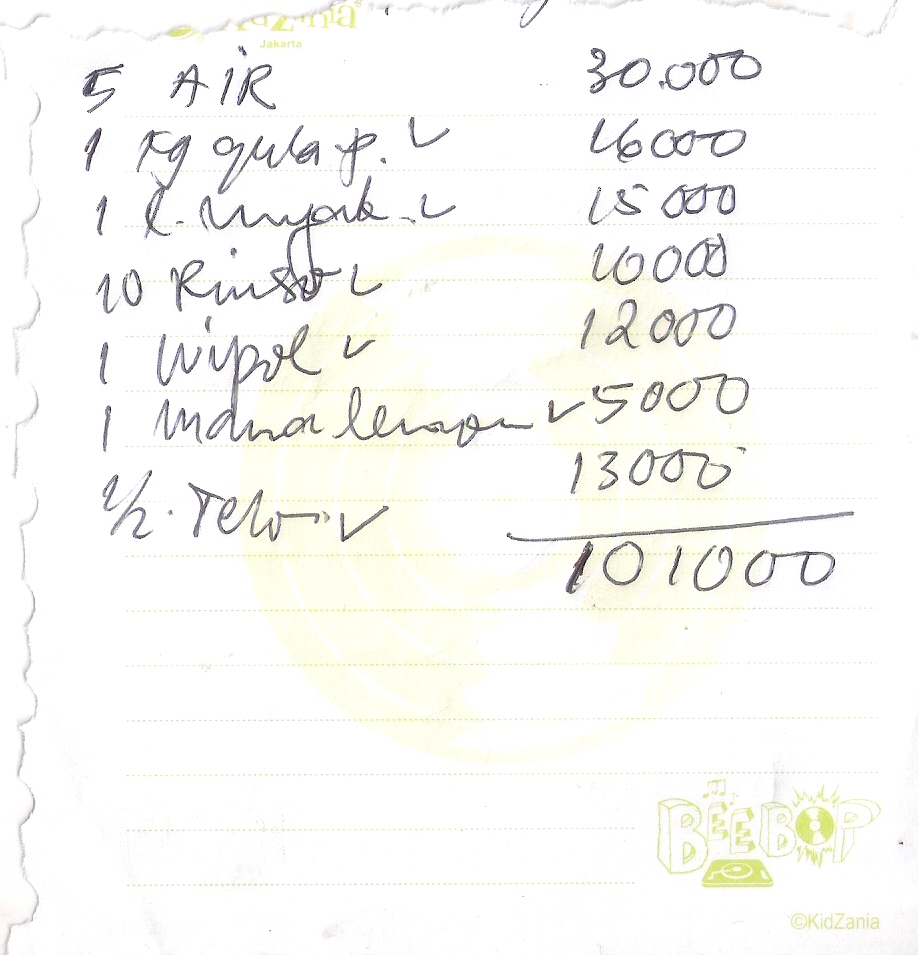 KidZania
Jakarta
5 AIR 30.000
1 kg gula p. 16000
1 l. minyak. 15000
10 Rinso 10000
1 Wipol 12000
1 mama lemon 5000
1/2. Telor 13000
101000
BEEBOP
©KidZania